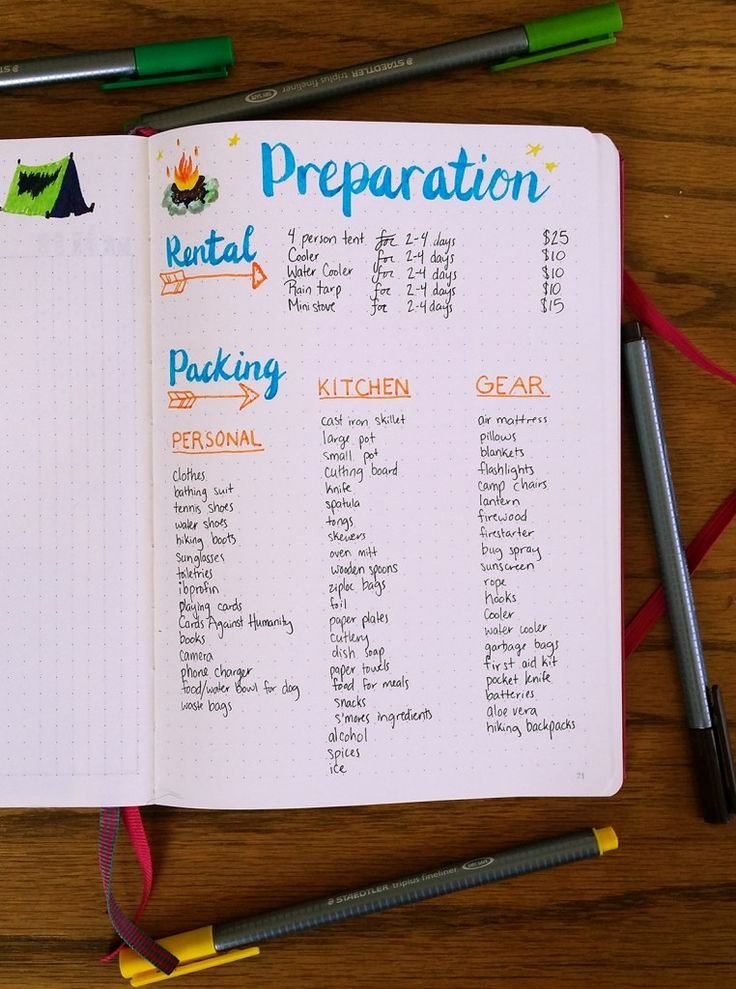 STAEDTLER triplus fineliner
Preparation
Rental
4 person tent for 2-4 days $25
Cooler for 2-4 days $10
Water Cooler for 2-4 days $10
Rain tarp for 2-4 days $10
Mini stove for 2-4 days $15
Packing
PERSONAL
clothes
bathing suit
tennis shoes
water shoes
hiking boots
sunglasses
toiletries
ibprofin
playing cards
Cards Against Humanity
books
camera
phone charger
food/water bowl for dog
waste bags
KITCHEN
cast iron skillet
large pot
small pot
cutting board
knife
spatula
tongs
skewers
oven mitt
wooden spoons
ziploc bags
foil
paper plates
cutlery
dish soap
paper towels
food for meals
snacks
s'mores ingredients
alcohol
spices
ice
GEAR
air mattress
pillows
blankets
flashlights
camp chairs
lantern
firewood
firestarter
bug spray
sunscreen
rope
hooks
cooler
water cooler
garbage bags
first aid kit
pocket knife
batteries
aloe vera
hiking backpacks
21
STAEDTLER triplus fineliner